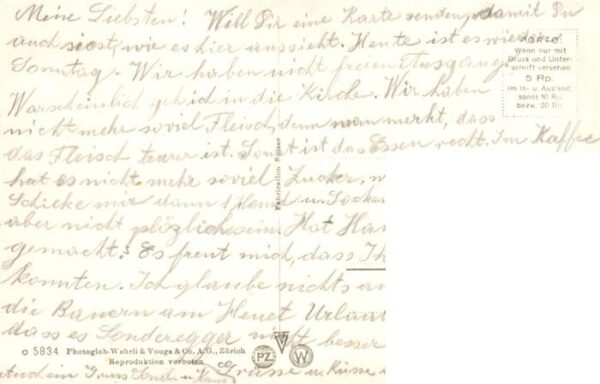 Meine Liebsten! Will Dir eine Karte senden, damit Du
auch siest, wie es hier aussieht. Heute ist es wieder
Sonntag. Wir haben nicht freien Ausgang
Warscheinlich geh ich in die Kirche. Wir haben
nicht mehr soviel Fleisch, denn man merkt, dass
das Fleisch teurer ist. Sonst ist das Essen recht. Im Kaffee
hat es nicht mehr soviel Zucker, w
Schicke mir dann 1 Hemd u. Socken
aber nicht plözlich sein. Hat Han
gemacht? Es freut mich, dass Ih
konnten. Ich glaube nichts an
die Bauern am Heuet Urlaub
dass es Sonderegger nicht besser
Grüsse u. Küsse
PORTO
Wenn nur mit
Gruss und Unter-
schrift versehen
5 Rp.
im In- u. Ausland,
sonst 10 Rp.
bezw. 20 Rp.
Fabrication Suisse
o 5834 Photoglob-Wehrli & Vouga & Co. A.G., Zürich
Reproduktion verboten
PZ V W